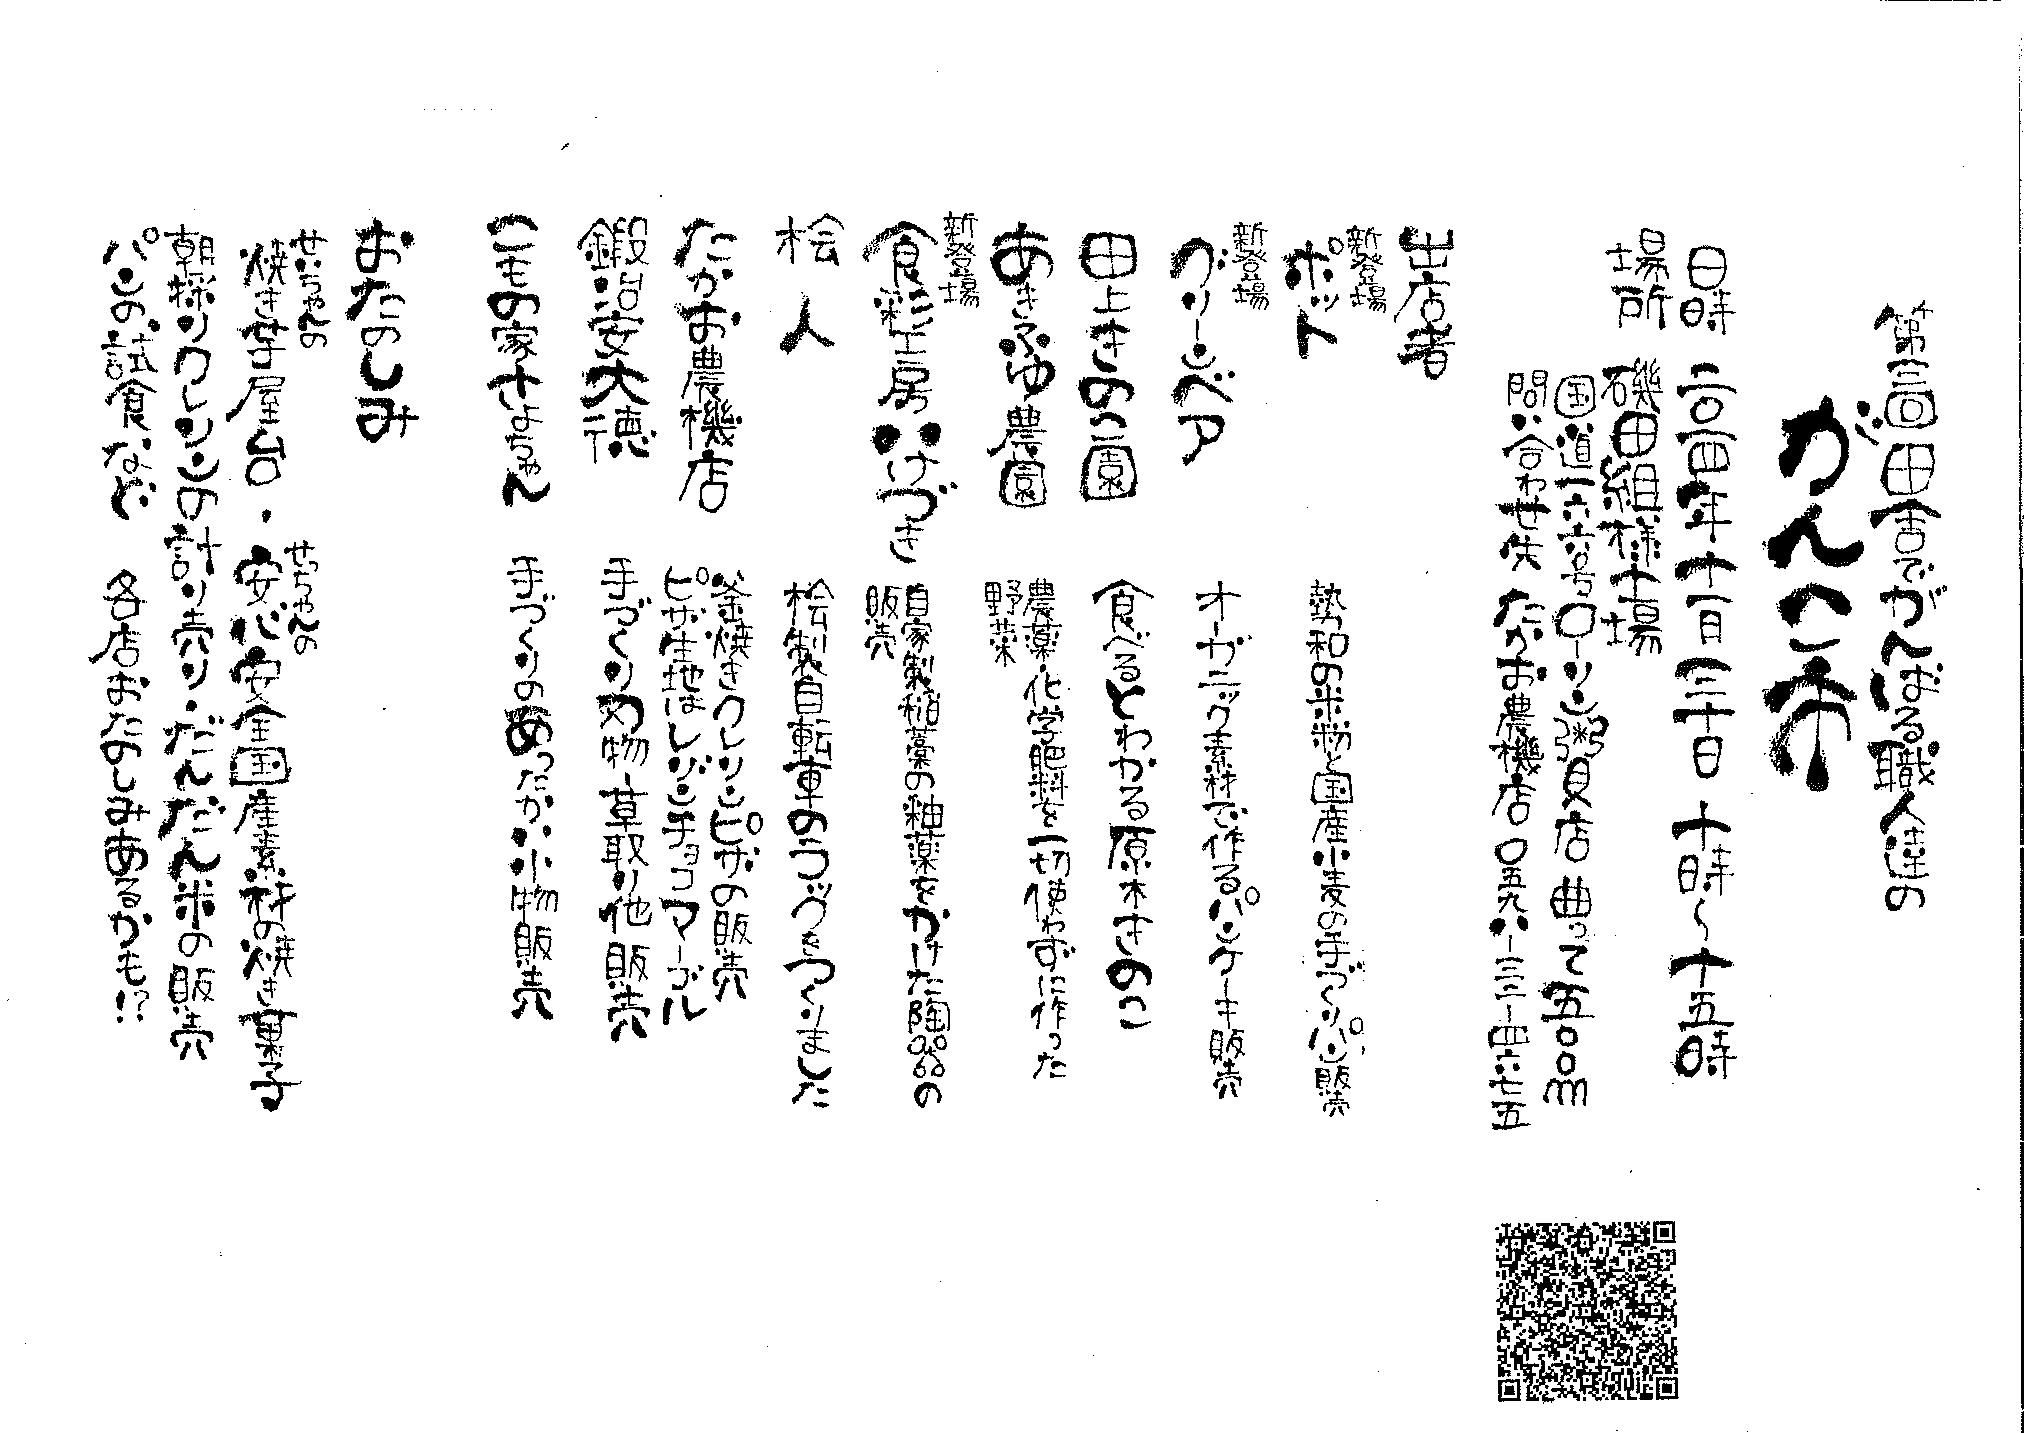 第三回田舎でがんばる職人達の
がんこ市
日時 二〇二四年十一月三十日 十時〜十五時
場所 磯田組様土場
国道一六六号ローソン粥見店曲って五〇〇m
問い合わせ先 たかお農機店 〇五九八ー三二ー四六七五
出店者
新登場
ポット 勢和の米粉と国産小麦の手づくりパン販売
新登場
グリーンベア オーガニック素材で作るパンケーキ販売
田上きのこ園 食べるとわかる原木きのこ
あきふゆ農園 農薬・化学肥料を一切使わずに作った
野菜
新登場
食彩工房いけづき 自家製稲藁の釉薬をかけた陶器の
販売
桧人 桧製自転車のラックをつくりました
たかお農機店 釜焼きクレソンピザの販売
ピザ生地はレーズンチョコマーブル
鍛冶安大徳 手づくり刃物 草取り他販売
こもの家 十よちゃん 手づくりのあったかい小物販売
おたのしみ
せいちゃんの
焼き芋屋台・
せっちゃんの
安心安全国産素材の焼き菓子
朝採りクレソンの計り売り・だんだん米の販売
パンの試食など 各店おたのしみあるかも!?